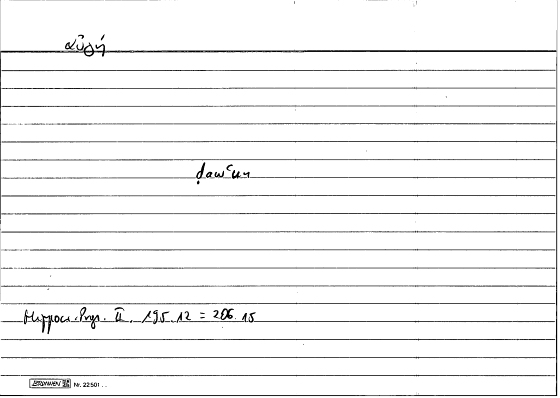 αὐγή
ḍawʾun
Hippocr. Progn. II, 195.12 = 206.15
BRUNNEN Nr. 22501